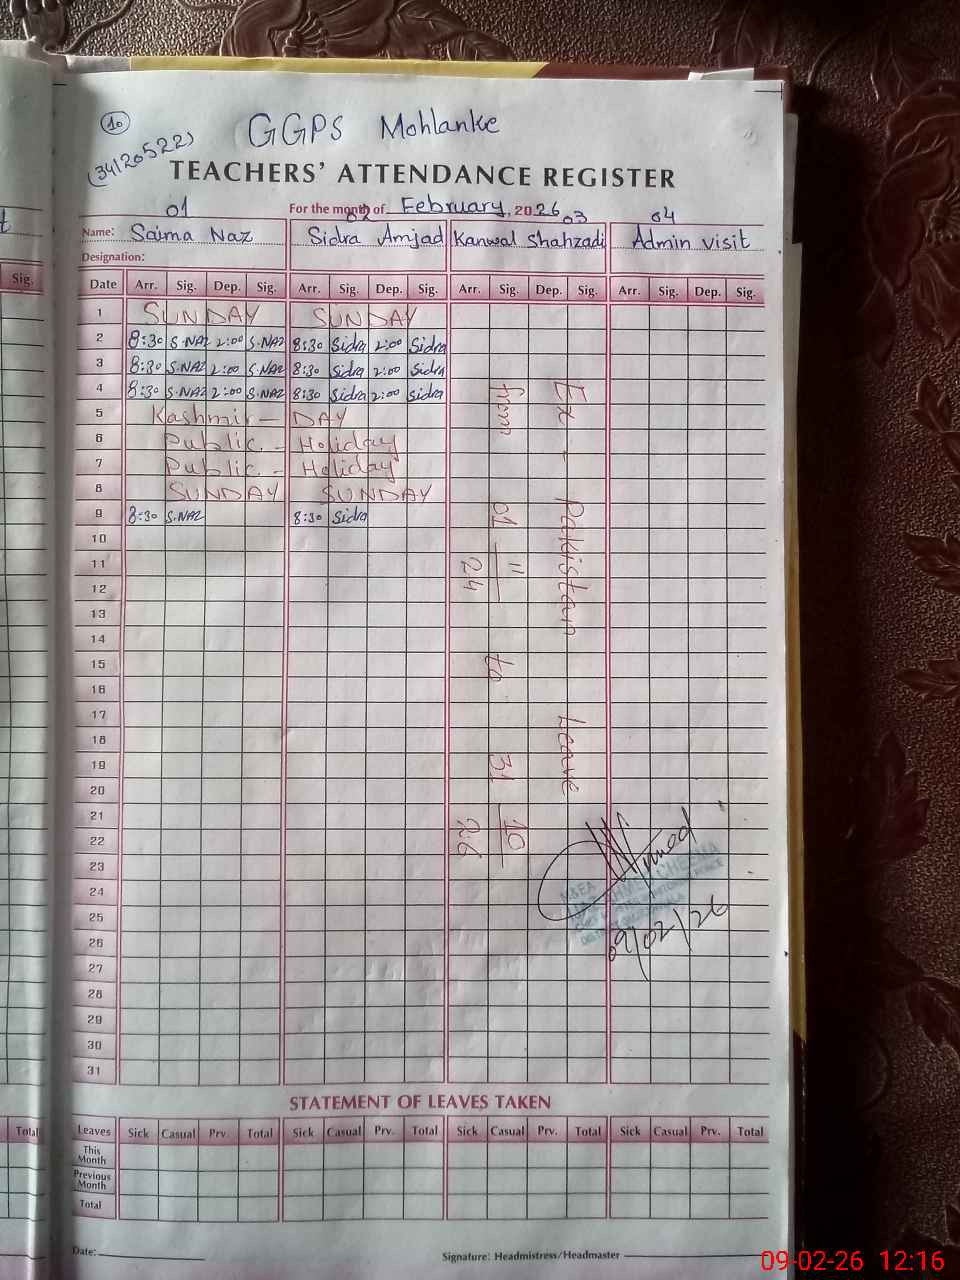 10
GGPS Mohlanke
(34120522)
TEACHERS' ATTENDANCE REGISTER
For the month of February, 2026
01 02 03 04
Name: Saima Naz Sidra Amjad Kanwal Shahzadi Admin visit
Designation:
Sig. Date Arr. Sig. Dep. Sig. Arr. Sig. Dep. Sig. Arr. Sig. Dep. Sig. Arr. Sig. Dep. Sig.
1 SUNDAY SUNDAY
2 8:30 S.NAZ 2:00 S.NAZ 8:30 Sidra 2:00 Sidra
3 8:30 S.NAZ 2:00 S.NAZ 8:30 Sidra 2:00 Sidra
4 8:30 S.NAZ 2:00 S.NAZ 8:30 Sidra 2:00 Sidra
5 Kashmir - DAY
6 Public - Holiday
7 Public - Holiday
8 SUNDAY SUNDAY
9 8:30 S.NAZ 8:30 Sidra
10
11
12
13
14
15
16
17
18
19
20
21
22
23
24
25
26
27
28
29
30
31
Ex - Pakistan Leave
from 01 11 24 to 31 10 26
M&EA
09/02/26
STATEMENT OF LEAVES TAKEN
Total Leaves Sick Casual Prv. Total Sick Casual Prv. Total Sick Casual Prv. Total Sick Casual Prv. Total
This Month
Previous Month
Total
Date:
Signature: Headmistress/Headmaster
09-02-26 12:16